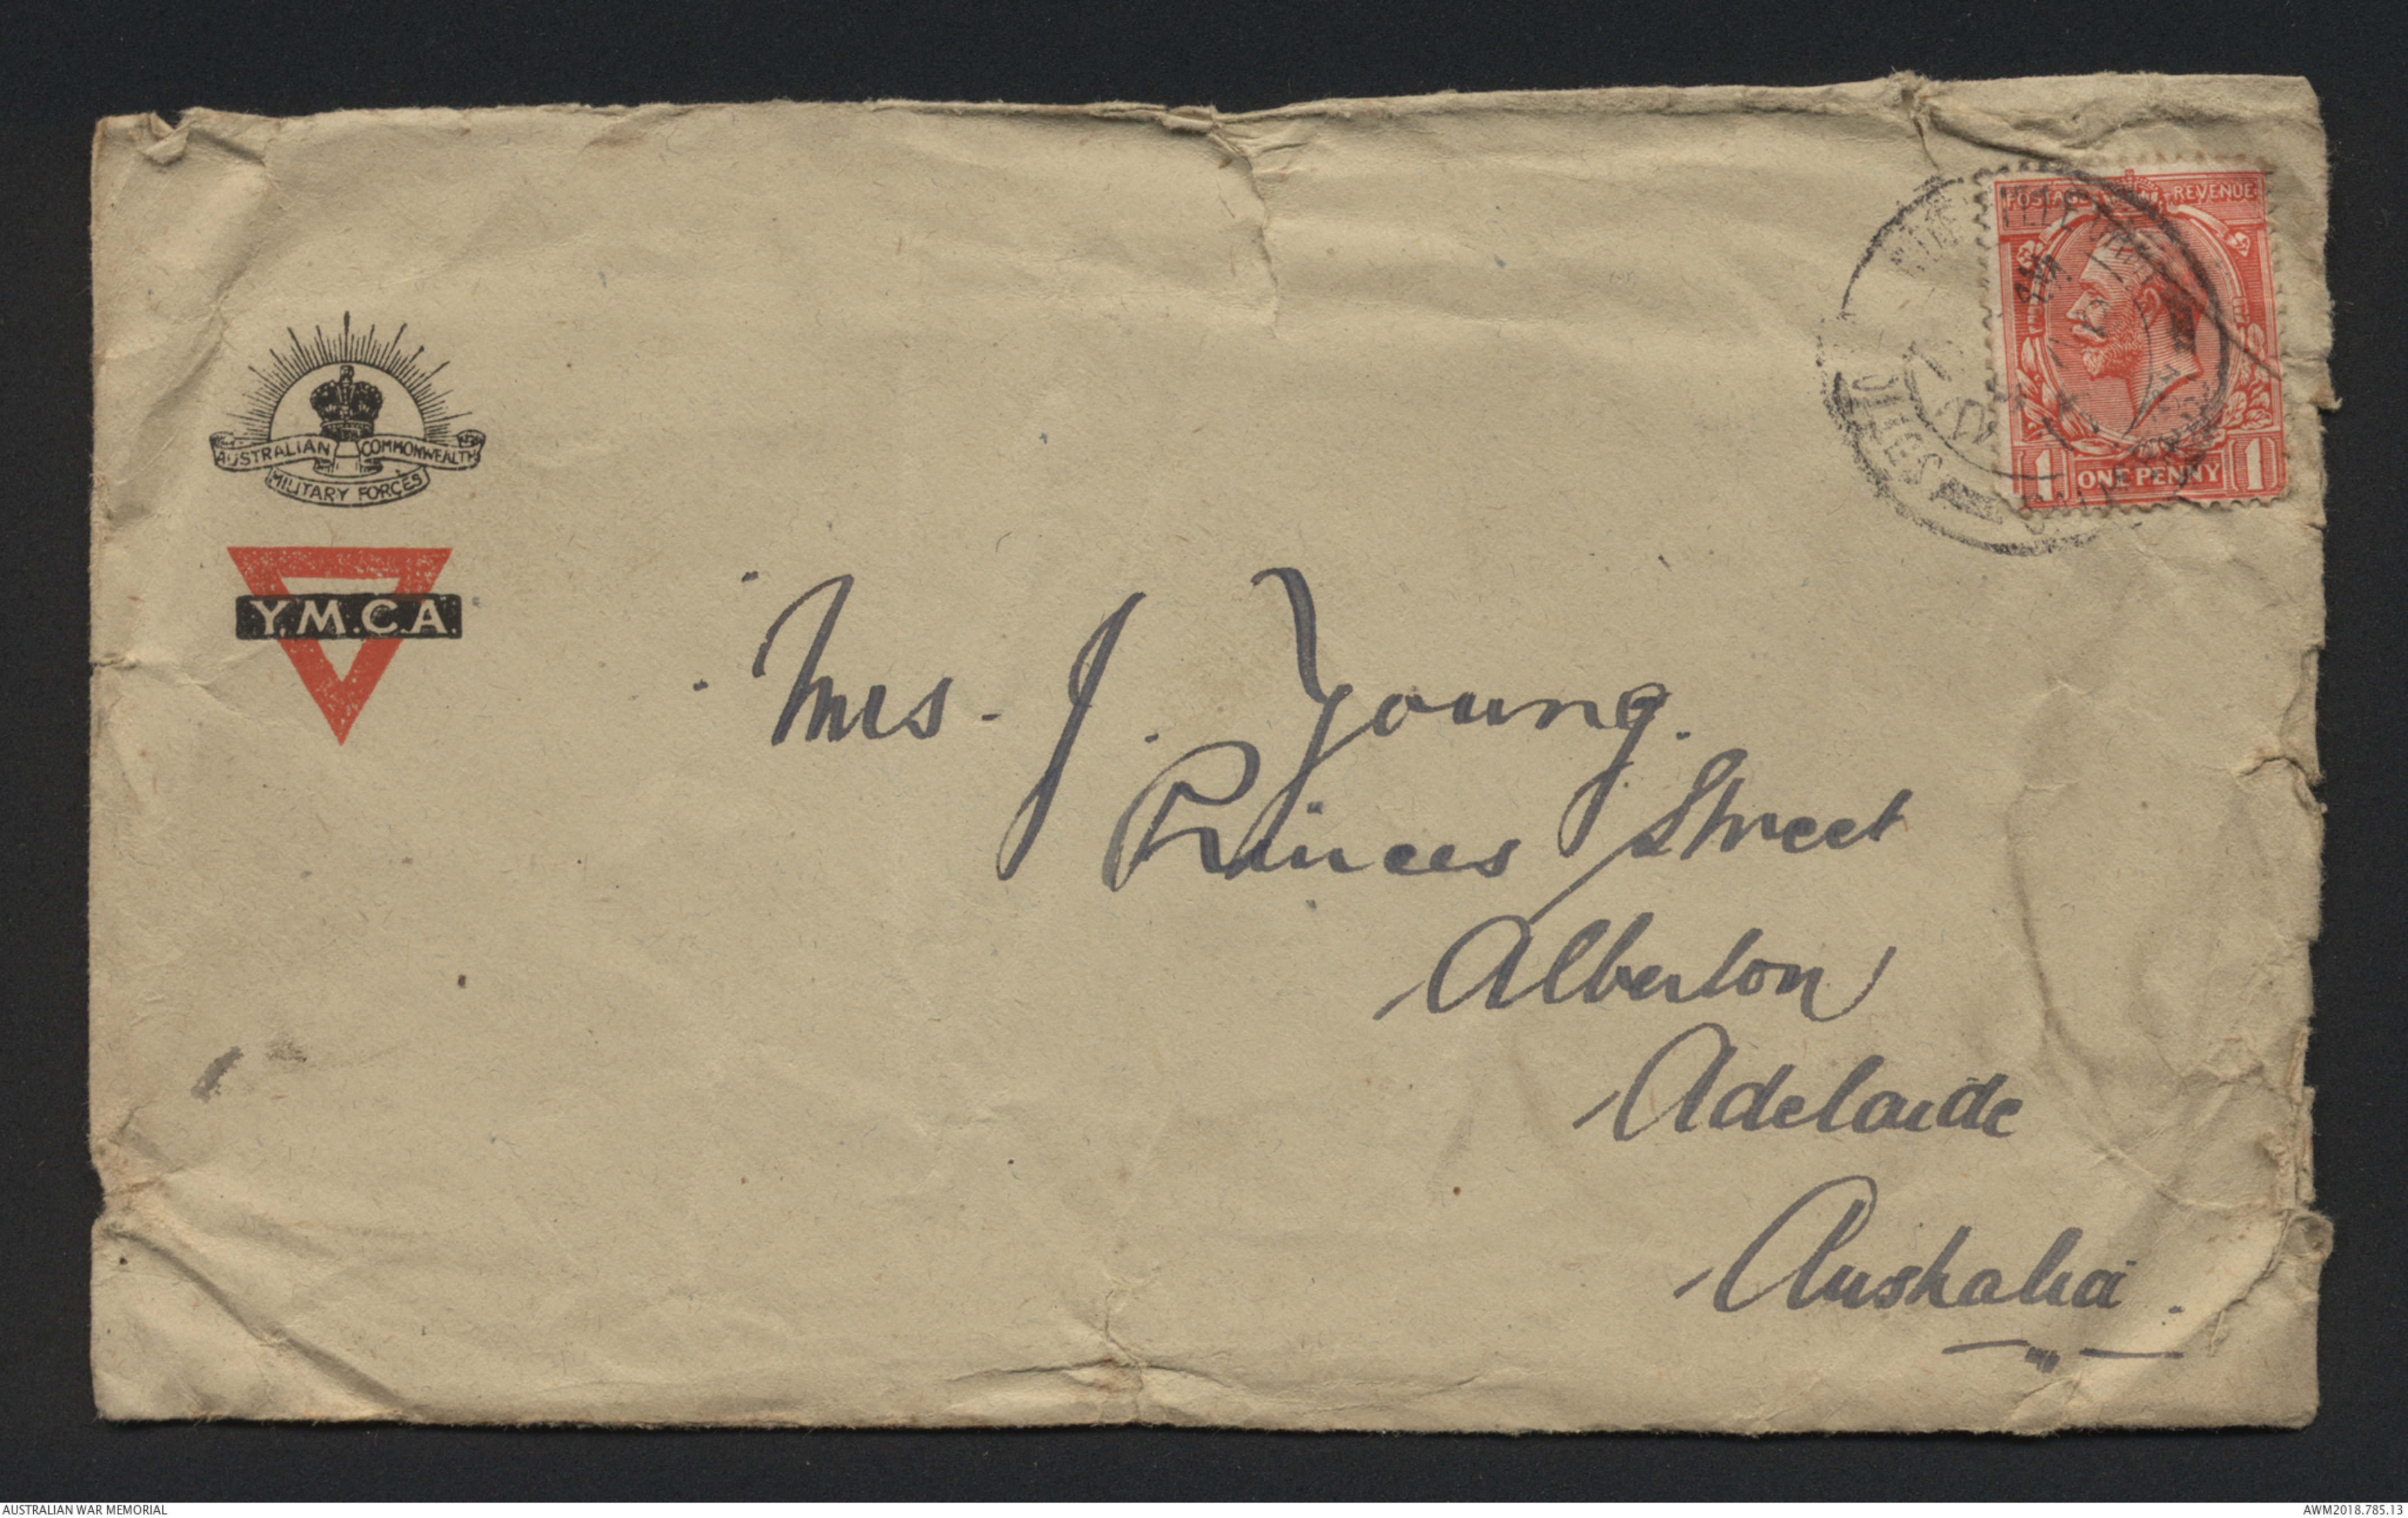 POSTAGE REVENUE
AUSTRALIAN COMMONWEALTH
MILITARY FORCES
1 ONE PENNY 1
Y.M.C.A.
Mrs. J. Young.
Princes Street
Alberton
Adelaide
Australia.
AUSTRALIAN WAR MEMORIAL
AWM2018.785.13